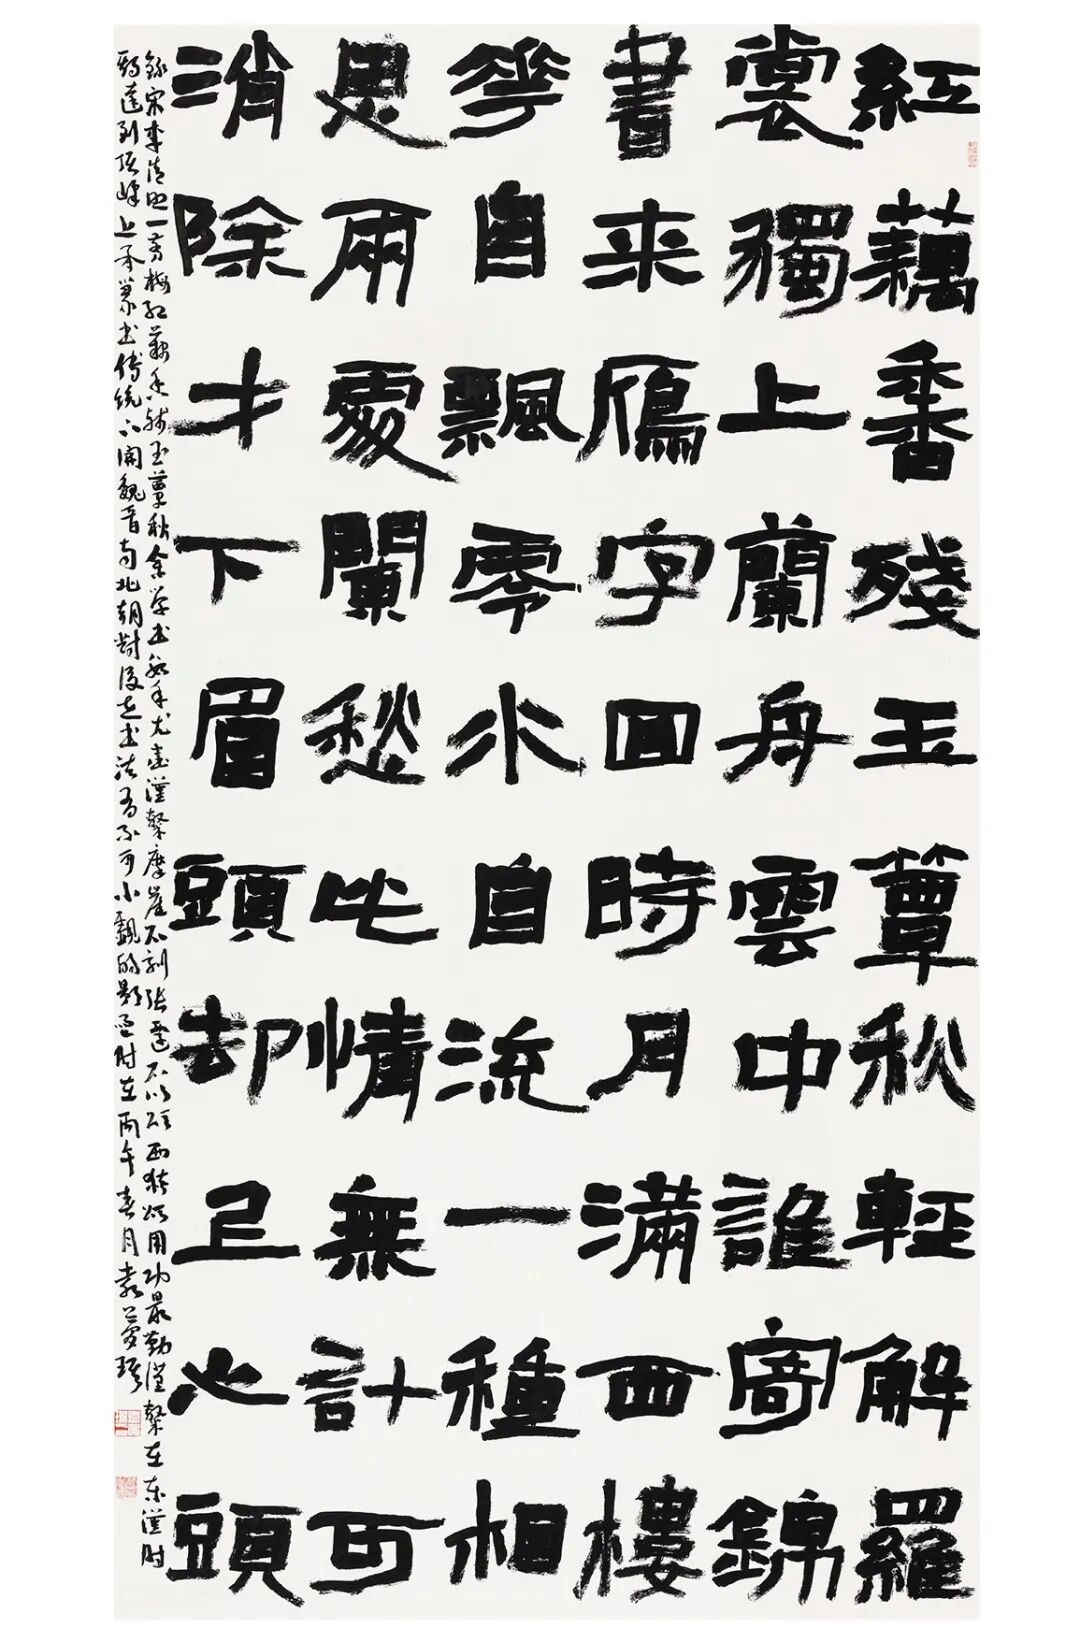 紅藕香殘玉簟秋輕解羅
裳獨上蘭舟雲中誰寄錦
書来鴈字回時月滿西樓
花自飄零水自流一種相
思兩處闌愁此情無計可
消除才下眉頭却上心頭
錄宋李清照一剪梅紅藕香殘玉簟秋余學書數年尤喜漢隸摩崖石刻張遷石門頌西狹頌用功最勤漢隸在東漢時
期達到頂峰上承篆書傳統下開魏晉南北朝對後世書法有不可小覷的影響時在丙午春月